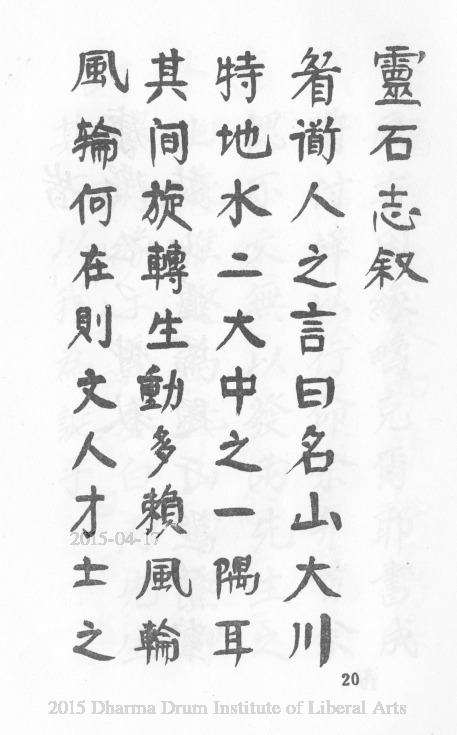 靈石志叙
衜人之言曰名山大川
特地水二大中之一隅耳
其间旋轉生動多賴風輪
風輪何在則文人才士之
2015-04-17
20
2015 Dharma Drum Institute of Liberal Arts